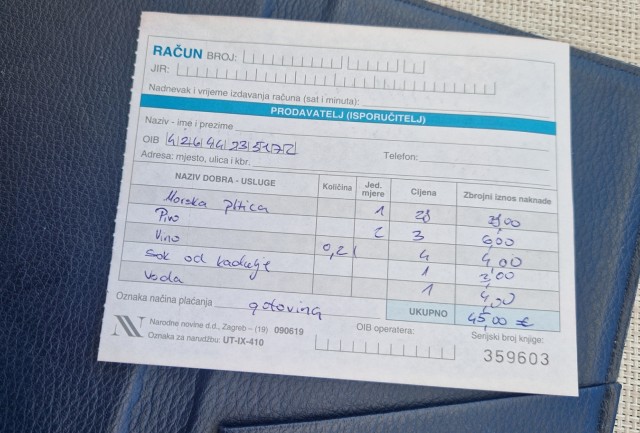 RAČUN BROJ:
JIR:
Nadnevak i vrijeme izdavanja računa (sat i minuta):
PRODAVATELJ (ISPORUČITELJ)
Naziv - ime i prezime
OIB
Telefon:
Adresa: mjesto, ulica i kbr.
NAZIV DOBRA - USLUGE Količina Jed. mjere Cijena Zbrojni iznos naknade
Morska plitica 1 28
Pivo 2 3 6,00
Vino 0,2l 4 4,00
Sok od kadulje 1
Voda 1
Oznaka načina plaćanja gotovina UKUPNO 45,00 €
Narodne novine d.d., Zagreb – (19) 090619 OIB operatera: Serijski broj knjige:
Oznaka za narudžbu: UT-IX-410 359603